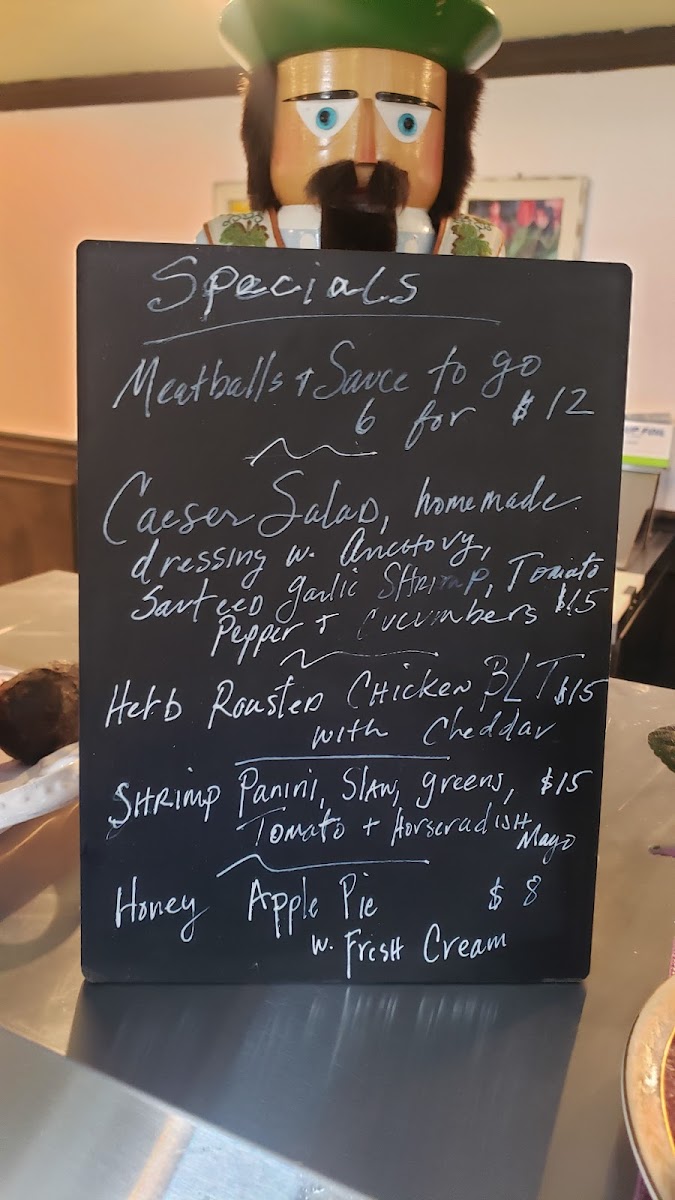 Specials
Meatballs + Sauce to go
6 for $12
Caeser Salad, homemade
dressing w. Anchovy,
Sauteed garlic Shrimp, Tomato
Pepper + Cucumbers $15
Herb Roasted Chicken BLT $15
with Cheddar
Shrimp Panini, Slaw, greens, $15
Tomato + Horseradish
Mayo
Honey Apple Pie $8
w. Fresh Cream